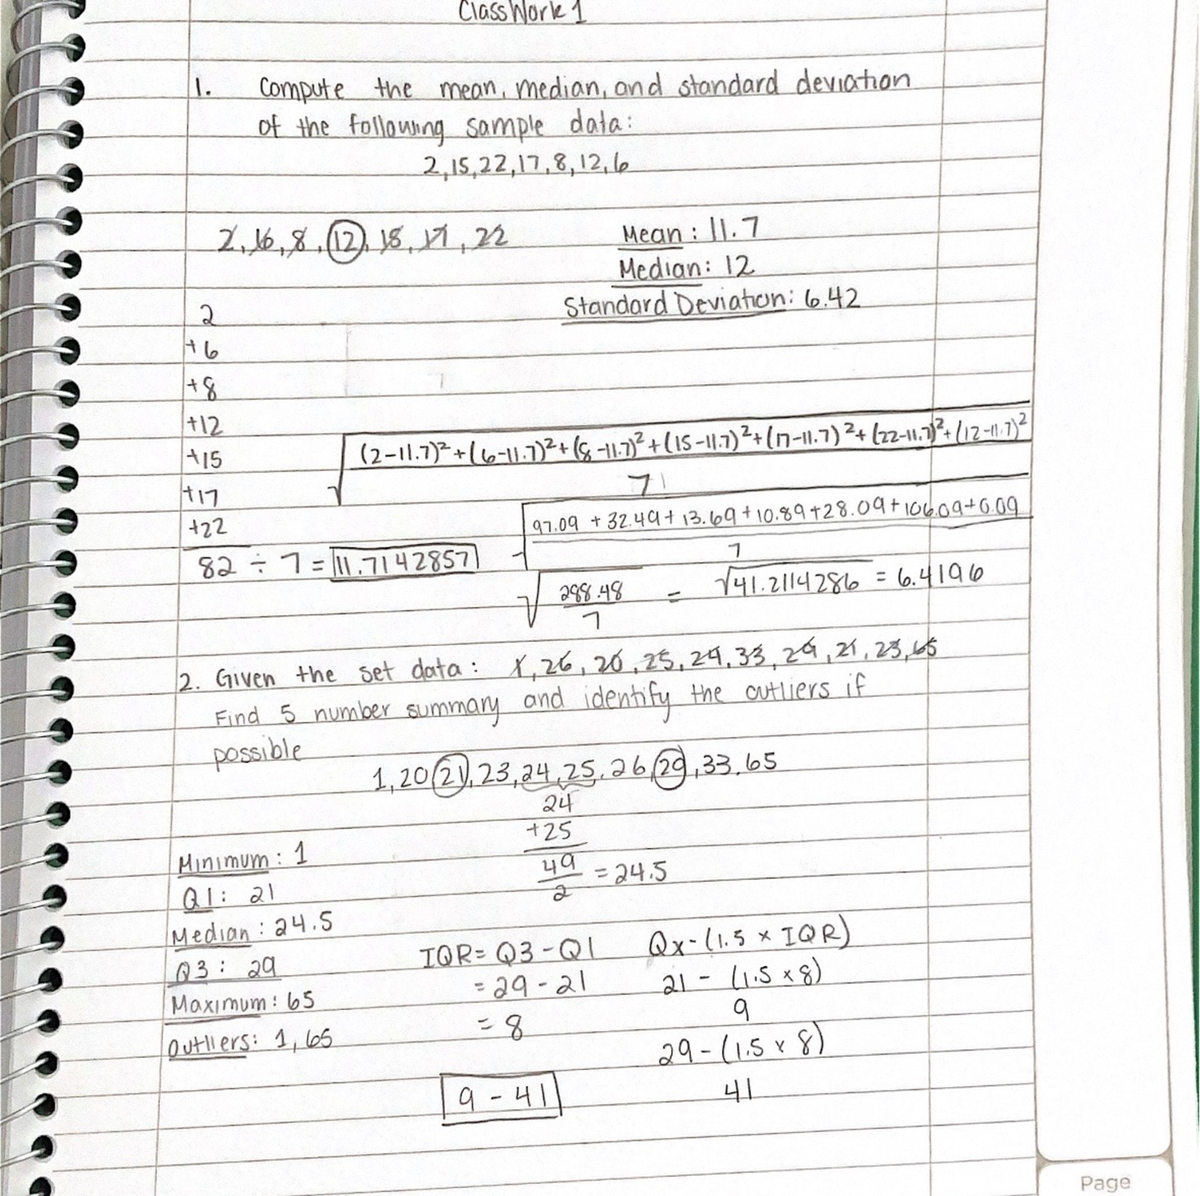 Classwork 1
1. Compute the mean, median, and standard deviation
of the following sample data:
2,15,22,17,8,12,6
2, 6, 8, 12, 15, 17, 22
Mean: 11.7
Median: 12
Standard Deviation: 6.42
2
+6
+8
+12
+15
+17
+22
82 ÷ 7 = 11.7142857
√(2-11.7)²+(6-11.7)²+(8-11.7)²+(15-11.7)²+(17-11.7)²+(22-11.7)²+(12-11.7)²
7
√97.09 + 32.49+ 13.69+10.89+28.09+106.09+0.09
7
√288.48 = √41.2114286 = 6.4196
7
2. Given the set data: 1, 26, 20, 25, 24, 33, 29, 21, 23, 65
Find 5 number summary and identify the outliers if
possible
1, 20, 21, 23, 24, 25, 26, 29, 33, 65
24
+25
49
= 24.5
2
Minimum: 1
Q1: 21
Median: 24.5
Q3: 29
Maximum: 65
Outliers: 1, 65
IQR= Q3-Q1
= 29 - 21
= 8
Qx-(1.5 × IQR)
21 - (1.5 × 8)
9
29-(1.5 × 8)
41
9 - 41
Page